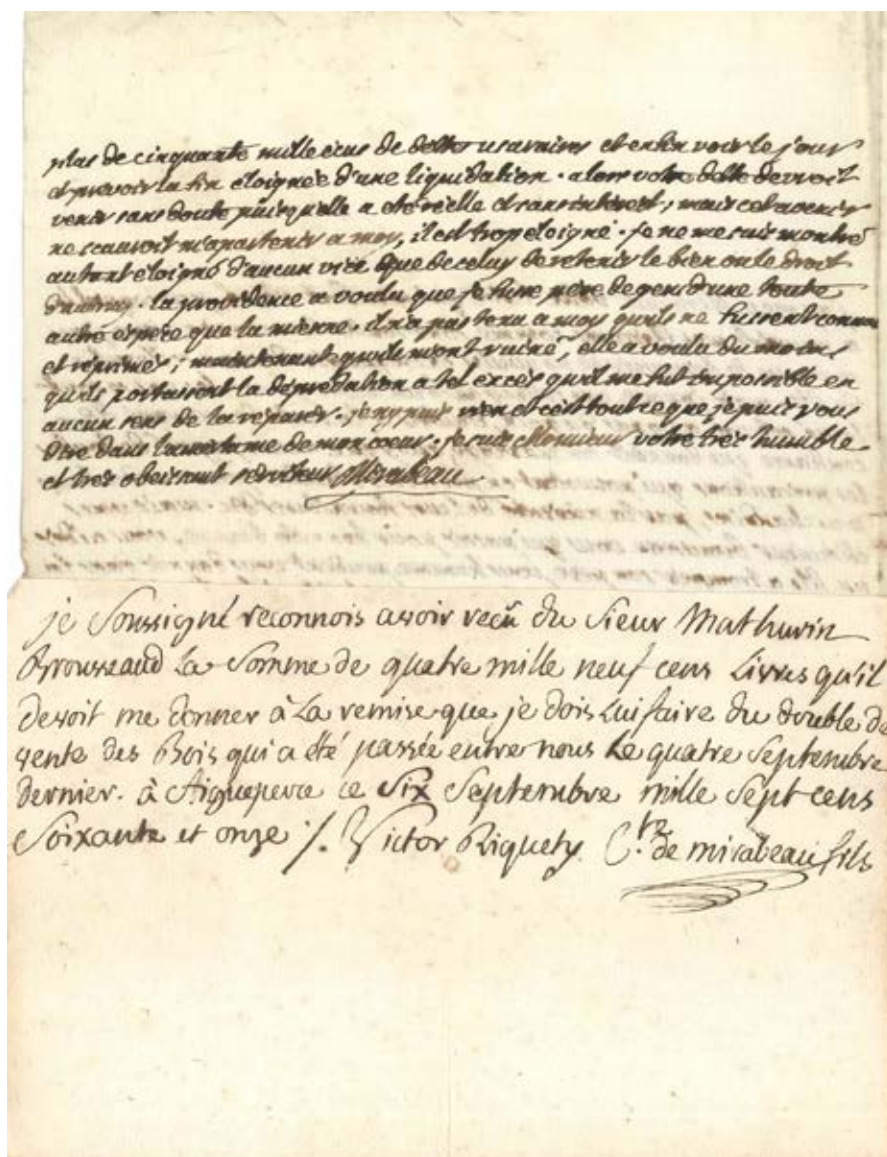 plus de cinquante mille ecus de dettes usuraires et enfin voir le jour
et prevoir la fin eloignée d'une liquidation. alors votre dette devroit
venir sans doute puisqu'elle a eté réelle et sans interest; mais cet avenir
ne scauroit m'apartenir a moy, il est trop eloigné. je ne me suis montré
autant eloigné d'aucun vice que de celuy de retenir le bien ou le droit
d'autruy. la providence a voulu que je fusse pere de gens d'une toute
autre espece que la mienne. il n'a pas tenu a moy qu'ils ne fussent connus
et réprimés; maintenant qu'ils m'ont ruiné, elle a voulu du moins
qu'ils portassent la dépredation a tel excés qu'il me fut impossible en
aucun sens de la réparer. je n'y puis rien et c'est tout ce que je puis vous
dire dans l'amertume de mon coeur. je suis Monsieur votre tres humble
et tres obeissant serviteur Mirabeau
je Soussigné reconnois avoir reçû du Sieur Mathurin
Brousseaud La Somme de quatre mille neuf cens Livres qu'il
devoit me donner à La remise que je dois Lui faire du double de
vente des Bois qui a été passée entre nous Le quatre Septembre
dernier. à Aigueperce ce Six Septembre mille Sept cens
Soixante et onze ./. Victor Riquety C.te de mirabeau fils